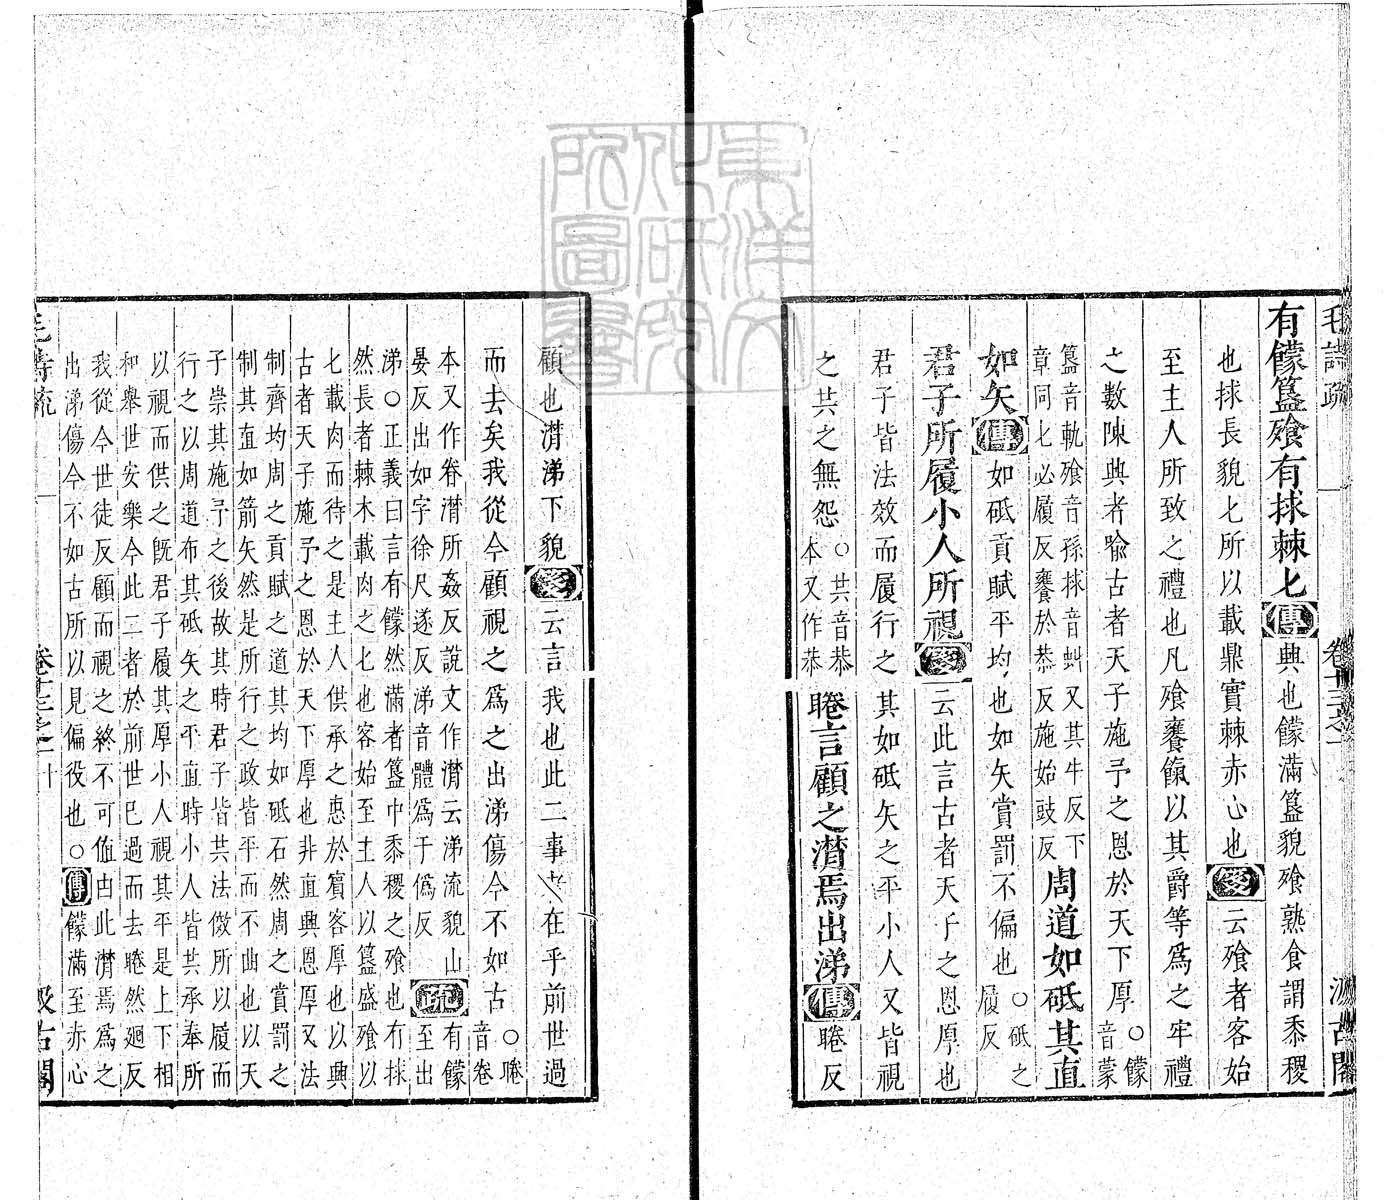 毛詩疏 卷十三之一 汲古閣
有饛簋飧有捄棘匕傳興也饛滿簋貌飧熟食謂黍稷
也捄長貌匕所以載鼎實棘赤心也箋云飧者客始
至主人所致之禮也凡飧饔餼以其爵等爲之牢禮
之數陳興者喻古者天子施予之恩於天下厚○饛音蒙
簋音軌飧音孫捄音虯又其牛反下
章同匕必履反饔於恭反施始豉反周道如砥其直
如矢傳如砥貢賦平均也如矢賞罰不偏也○砥之履反
君子所履小人所視箋云此言古者天子之恩厚也
君子皆法效而履行之其如砥矢之平小人又皆視
之共之無怨○共音恭本又作恭睠言顧之潸焉出涕傳睠反
顧也潸涕下貌箋云言我也此二事者在乎前世過
而去矣我從今顧視之爲之出涕傷今不如古○睠音卷
本又作眷潸所姦反說文作潸云涕流貌山
晏反出如字徐尺遂反涕音體爲于僞反疏有饛至出
涕○正義曰言有饛然滿者簋中黍稷之飧也有捄
然長者棘木載肉之匕也客始至主人以簋盛飧以
匕載肉而待之是主人供承之惠於賓客厚也以興
古者天子施予之恩於天下厚也非直興恩厚又法
制齊均周之貢賦之道其均如砥石然周之賞罰之
制其直如箭矢然是所行之政皆平而不曲也以天
子崇其施予之後故其時君子皆共法傚所以履而
行之以周道布其砥矢之平直時小人皆共承奉所
以視而供之旣君子履其厚小人視其平是上下相
和舉世安樂今此二者於前世巳過而去睠然迴反
我從今世徒反顧而視之終不可値由此潸焉爲之
出涕傷今不如古所以見偏役也○傳饛滿至赤心
毛詩疏 卷十三之一 十 汲古閣